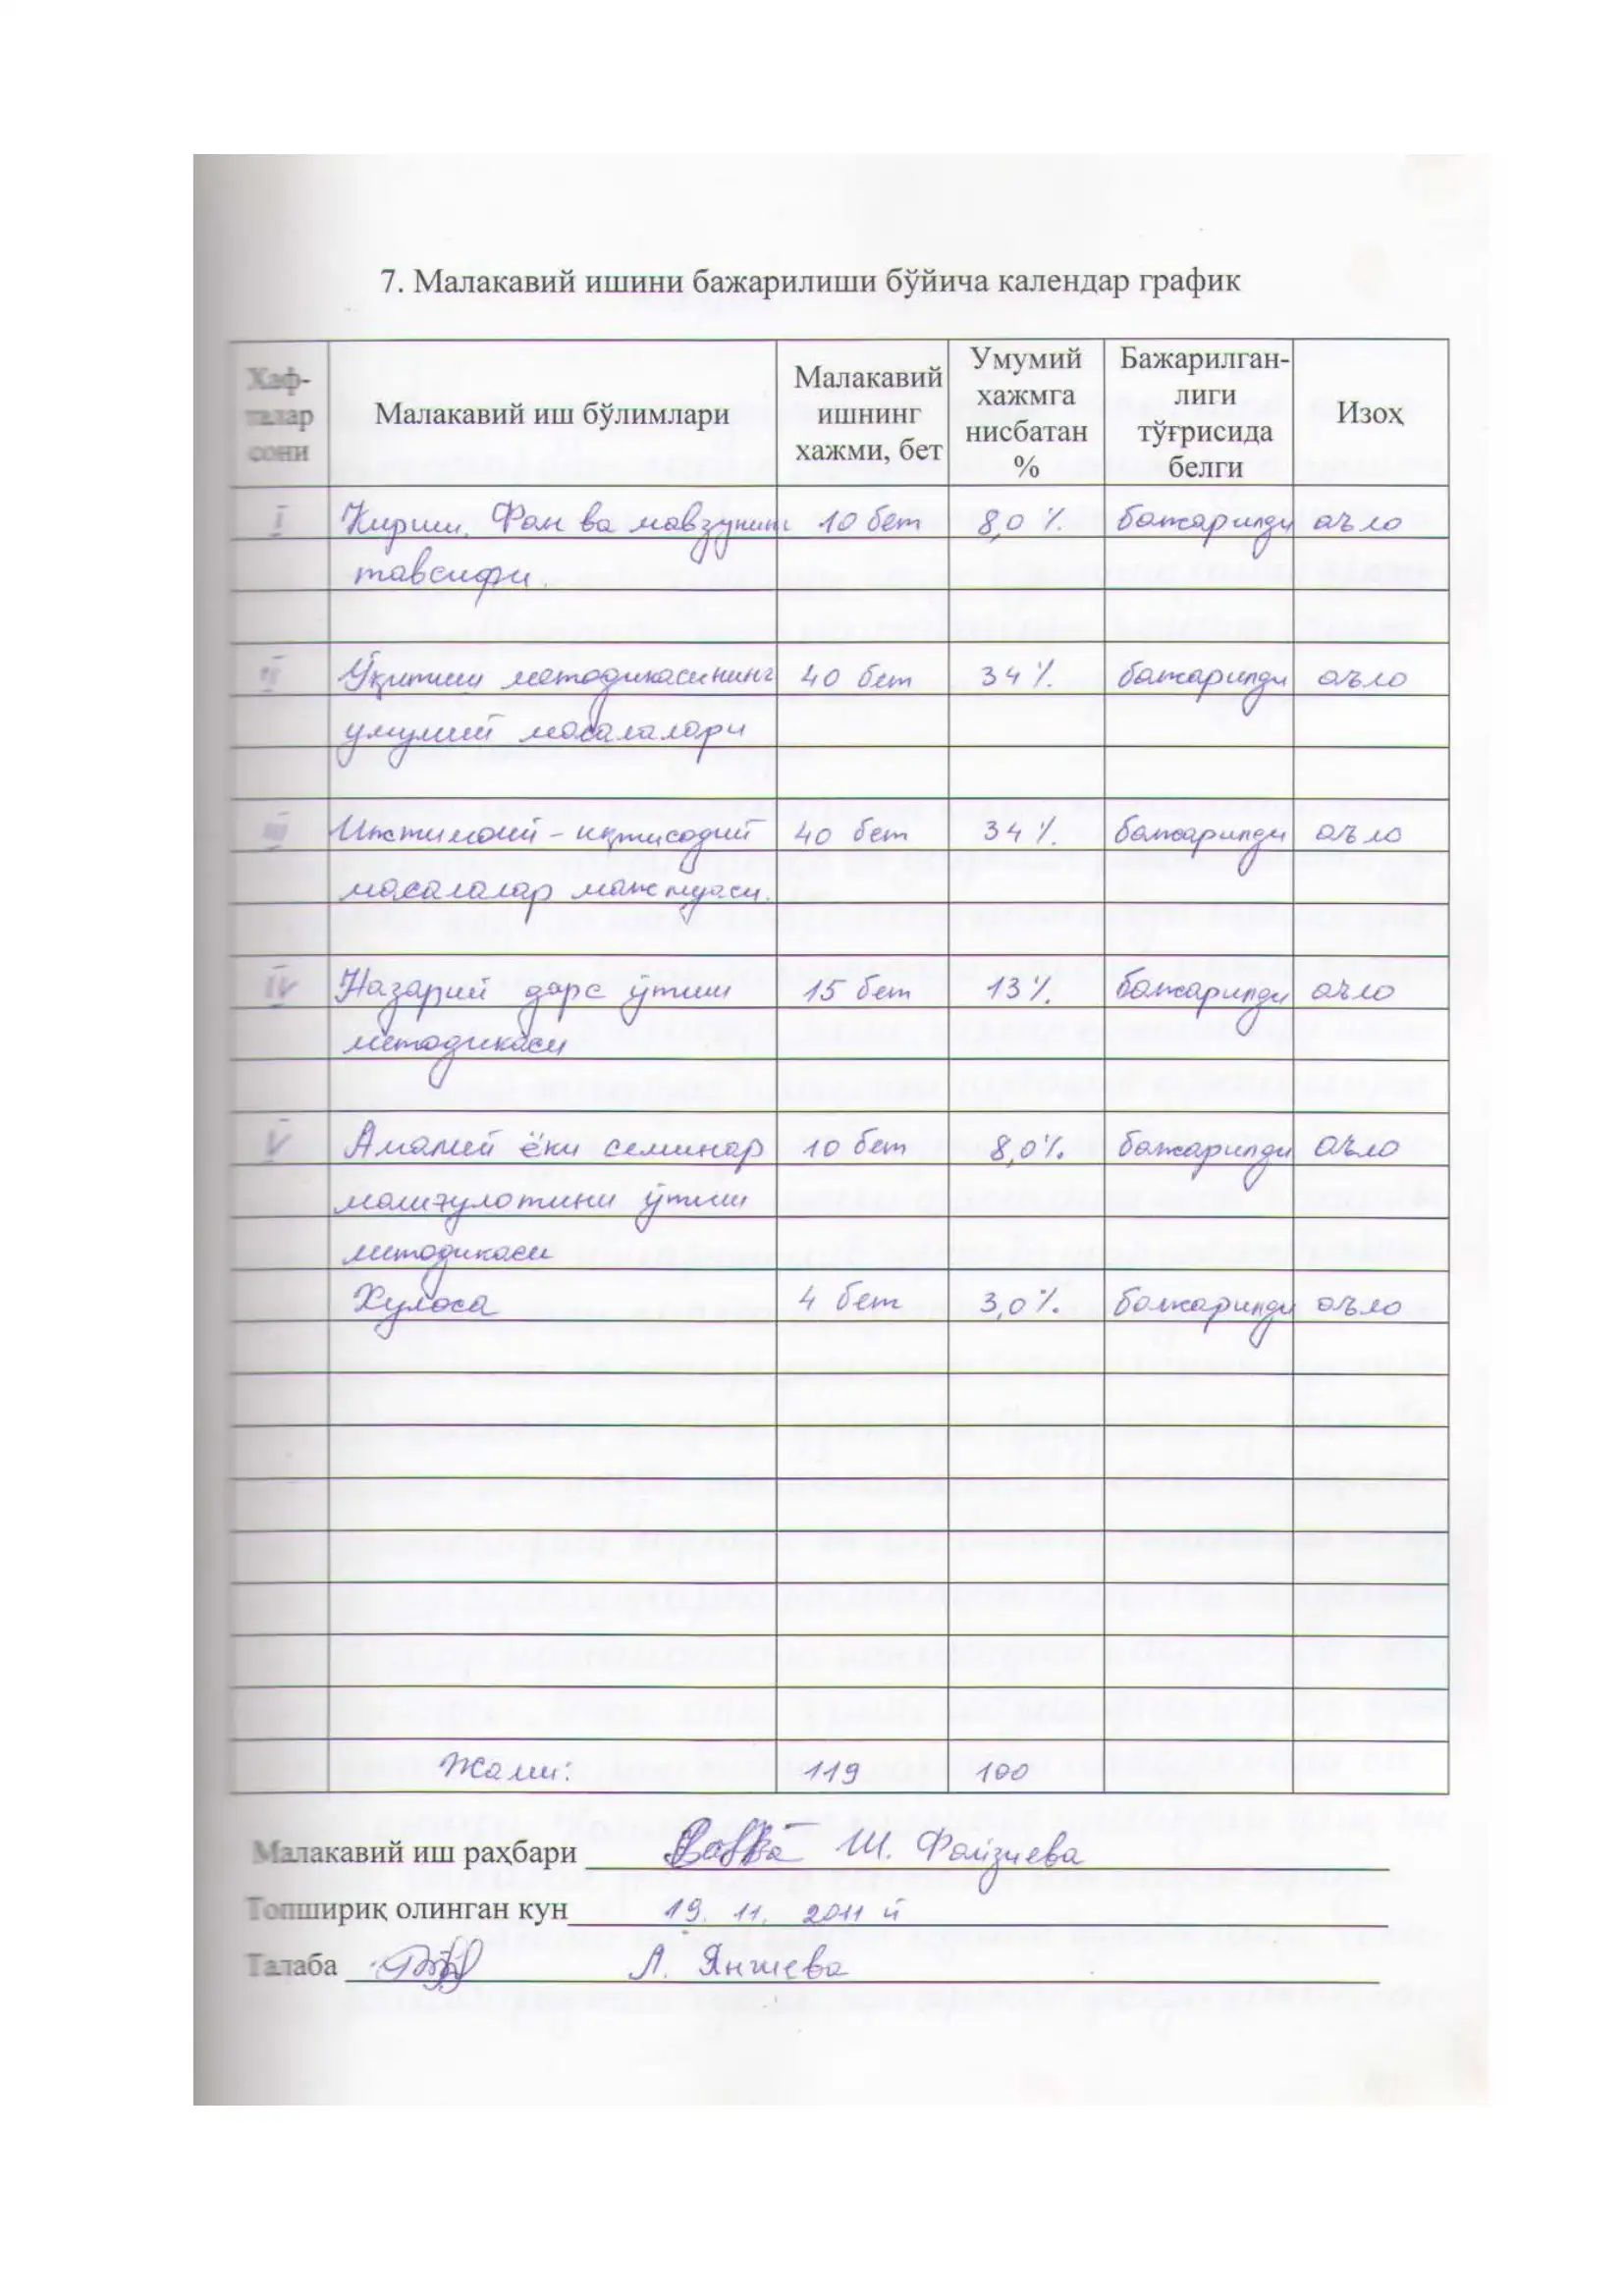 7. Малакавий ишини бажарилиши бўйича календар график
Хаф-
талар
сони
Малакавий иш бўлимлари
Малакавий
ишнинг
хажми, бет
Умумий
хажмга
нисбатан
%
Бажарилган-
лиги
тўғрисида
белги
Изоҳ
I Кириш. Фан ва мавзунинг 10 бет 8,0 % бажарилди аъло
тавсифи.
II Ўқитиш методикасининг 40 бет 34 % бажарилди аъло
умумий масалалари
III Ижтимоий - иқтисодий 40 бет 34 % бажарилди аъло
масалалар мажмуаси.
IV Назарий дарс ўтиш 15 бет 13 % бажарилди аъло
методикаси
V Амалий ёки семинар 10 бет 8,0 % бажарилди аъло
машғулотини ўтиш
методикаси
Хулоса 4 бет 3,0 % бажарилди аъло
Жами: 119 100
Малакавий иш раҳбари Ш. Файзиева
Топшириқ олинган кун 19. 11. 2011 й
Талаба Л. Янгиева